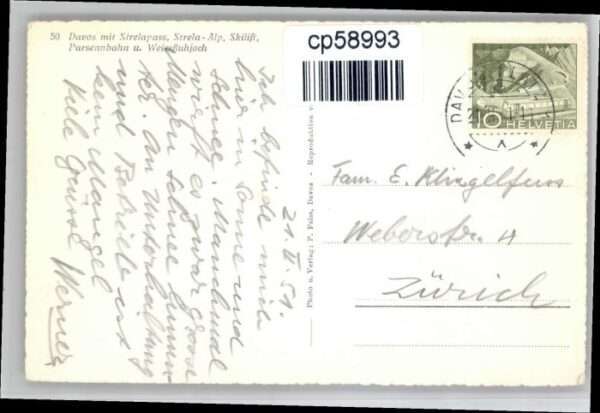 50 Davos mit Strelapass, Strela-Alp, Skilift,
Parsennbahn u. Weissfluhjoch
cp58993
DAVOS
10 HELVETIA
21. II. 51.
Ich befinde mich
hier in Sonne und
Schnee. Manchmal
wirft es zwar grosse
Mengen Schnee
An Unterhaltung
und Betrieb ist
kein Mangel
Viele Grüsse Werner
Photo u. Verlag: P. Faiss, Davos - Reproduktion v.
Fam. E. Klingelfuss
Weberstr. 4
Zürich